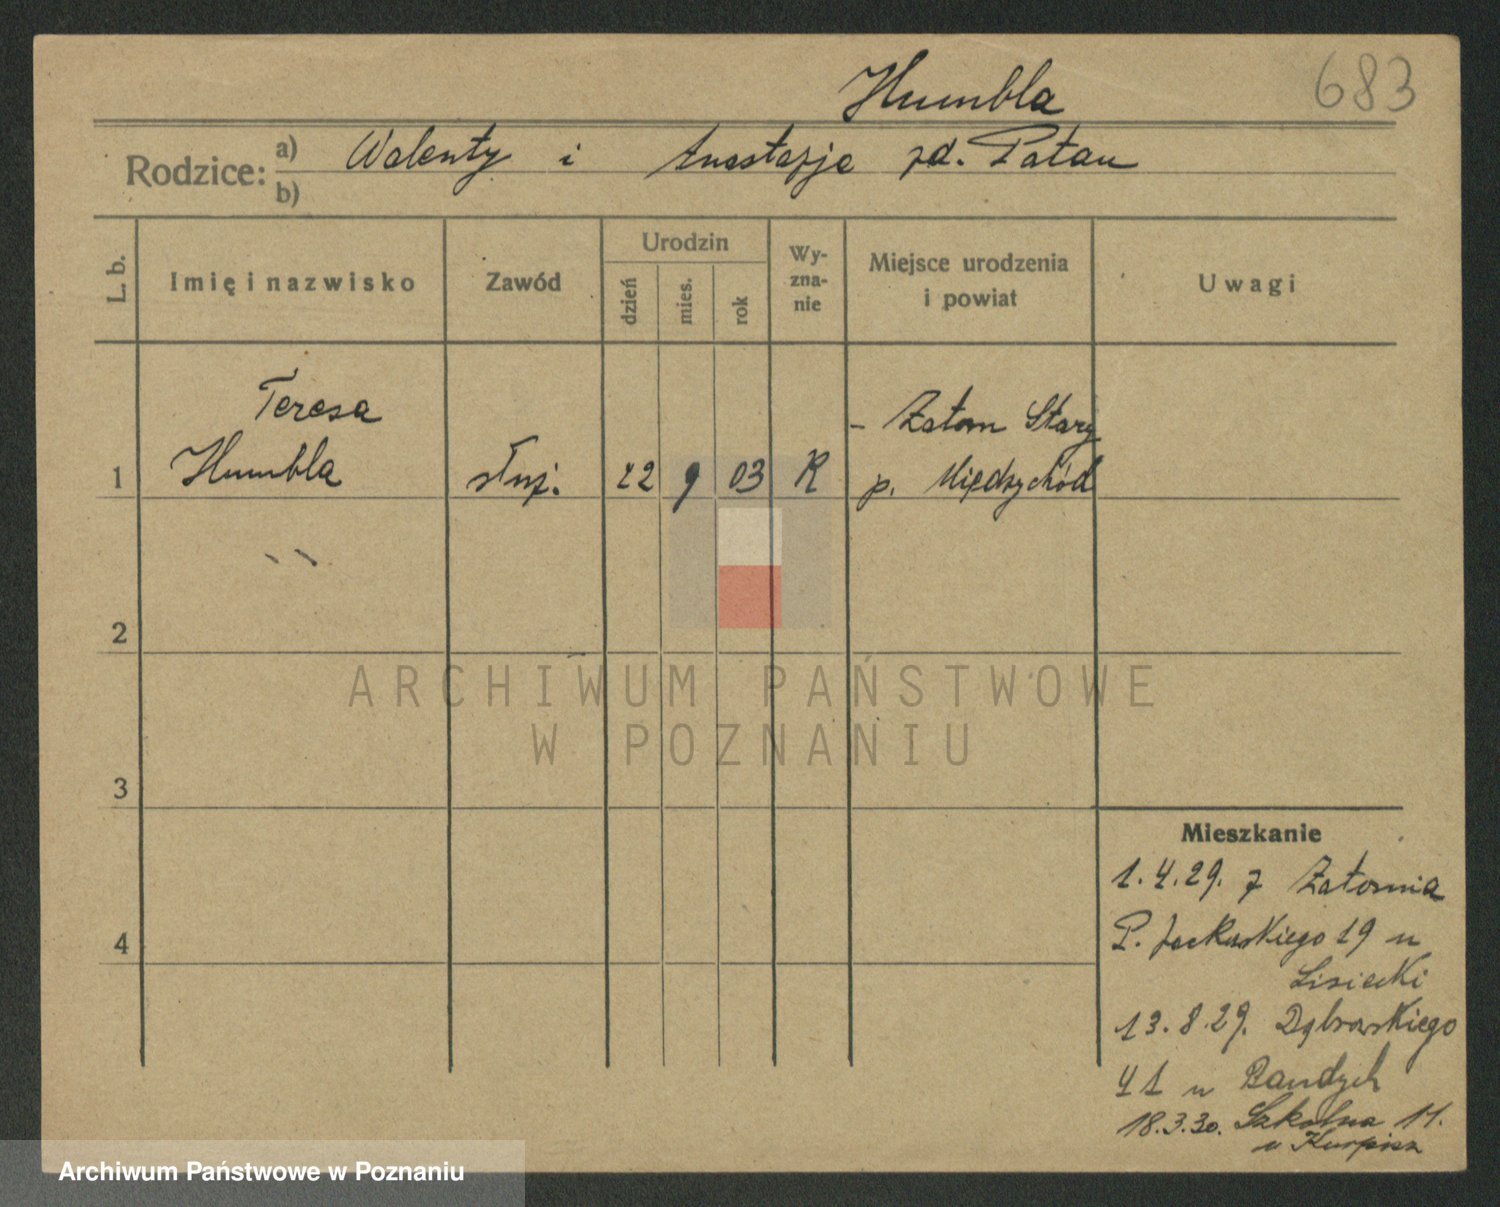 683
Humbla
Rodzice: a) Walenty i Anastazja zd. Patan
b)
L. b.
Imię i nazwisko
Zawód
Urodzin
dzień
mies.
rok
Wy-
zna-
nie
Miejsce urodzenia
i powiat
Uwagi
Teresa
- Zatom Stary
1 Humbla służ. 22 9 03 R p. Międzychód
2
ARCHIWUM PAŃSTWOWE
W POZNANIU
3
Mieszkanie
1.4.29. z Zatomia
4
P. Jackowskiego 19 u
Lisiecki
13.8.29. Dąbrowskiego
41 u Bandych
18.3.30. Szkolna 11.
u Kurpisz
Archiwum Państwowe w Poznaniu